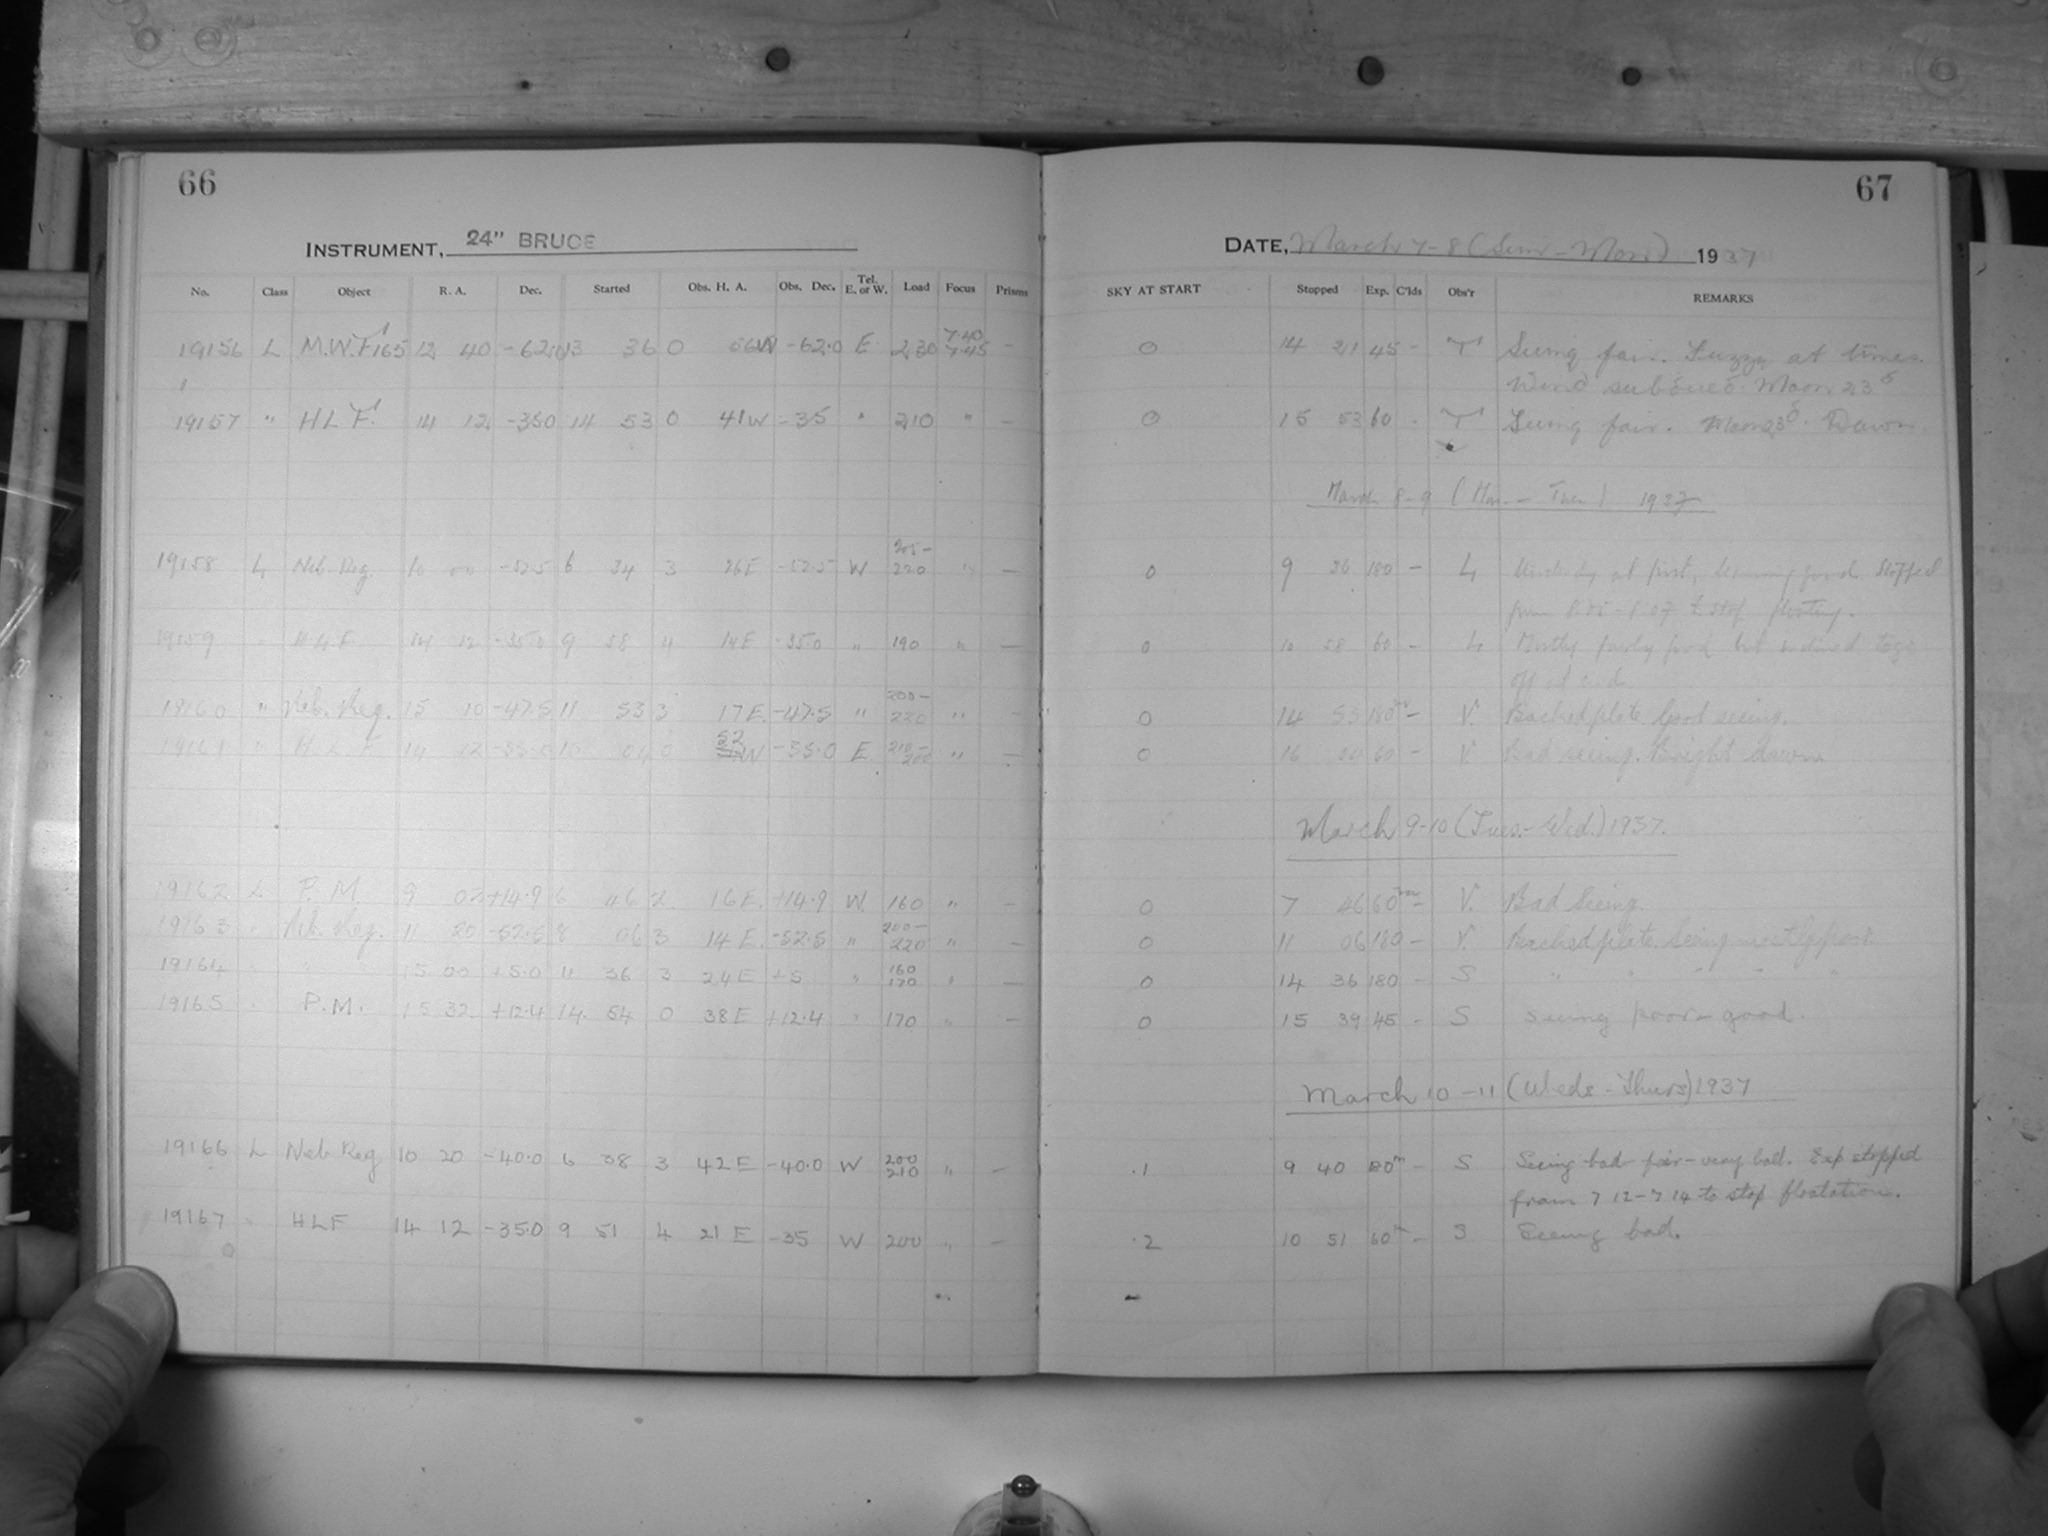 66
INSTRUMENT, 24" BRUCE
No. Class Object R. A. Dec. Started Obs. H. A. Obs. Dec. Tel. E. or W. Load Focus Prisms
19156 L M.W.F165 12 40 -62.0 13 36 0 56W -62.0 E 230 7.40 7.45 -
19157 " HLF. 14 12 -35.0 14 53 0 41W -35 " 210 " -
19158 L Neb. Reg. 10 00 -52.5 6 34 3 26E -52.5 W 205- 220 " -
19159 " H.L.F. 14 12 -35.0 9 58 4 14E -35.0 " 190 " -
19160 " Neb. Reg. 15 10 -47.5 11 53 3 17E. -47.5 " 200- 220 " -
19161 " H.L.F. 14 12 -35.0 15 04 0 52 W -35.0 E 210- 200 " -
19162 L P.M. 9 02 +14.9 6 46 2 16E. +14.9 W. 160 " -
19163 " Neb. Reg. 11 20 -52.5 8 06 3 14E. -52.5 " 200- 220 " -
19164 " " 15 00 +5.0 11 36 3 24E +5 " 160 170 " -
19165 " P.M. 15 32 +12.4 14 54 0 38E +12.4 " 170 " -
19166 L Neb Reg 10 20 -40.0 6 38 3 42E -40.0 W 200 210 " -
19167 " HLF 14 12 -35.0 9 51 4 21E -35 W 200 " -
67
DATE, March 7-8 (Sun-Mon) 1937
SKY AT START Stopped Exp. C'lds Obs'r REMARKS
0 14 21 45 - T Seeing fair. Fuzzy at times
Wind subdued. Moon 23d
0 15 53 60 - T Seeing fair. Moon 23d. Dawn.
March 8-9 (Mon. - Tues) 1937
0 9 36 180 - L at first, good. Stopped
from - 8.07 to stop floating.
0 10 58 60 - L Mostly fairly good but inclined to go
off at end
0 14 53 180m - V. Backed plate. Good seeing.
0 16 04 60 - V. Bad seeing. Bright dawn.
March 9-10 (Tues.-Wed.) 1937.
0 7 46 60m - V. Bad Seeing.
0 11 06 180 - V. Backed plate. Seeing mostly poor.
0 14 36 180 - S " " " " "
0 15 39 45 - S Seeing poor - good.
March 10-11 (Weds-Thurs) 1937
.1 9 40 180m - S Seeing bad - fair - very bad. Exp stopped
from 7 12-7 14 to stop floatation.
.2 10 51 60m - S Seeing bad.